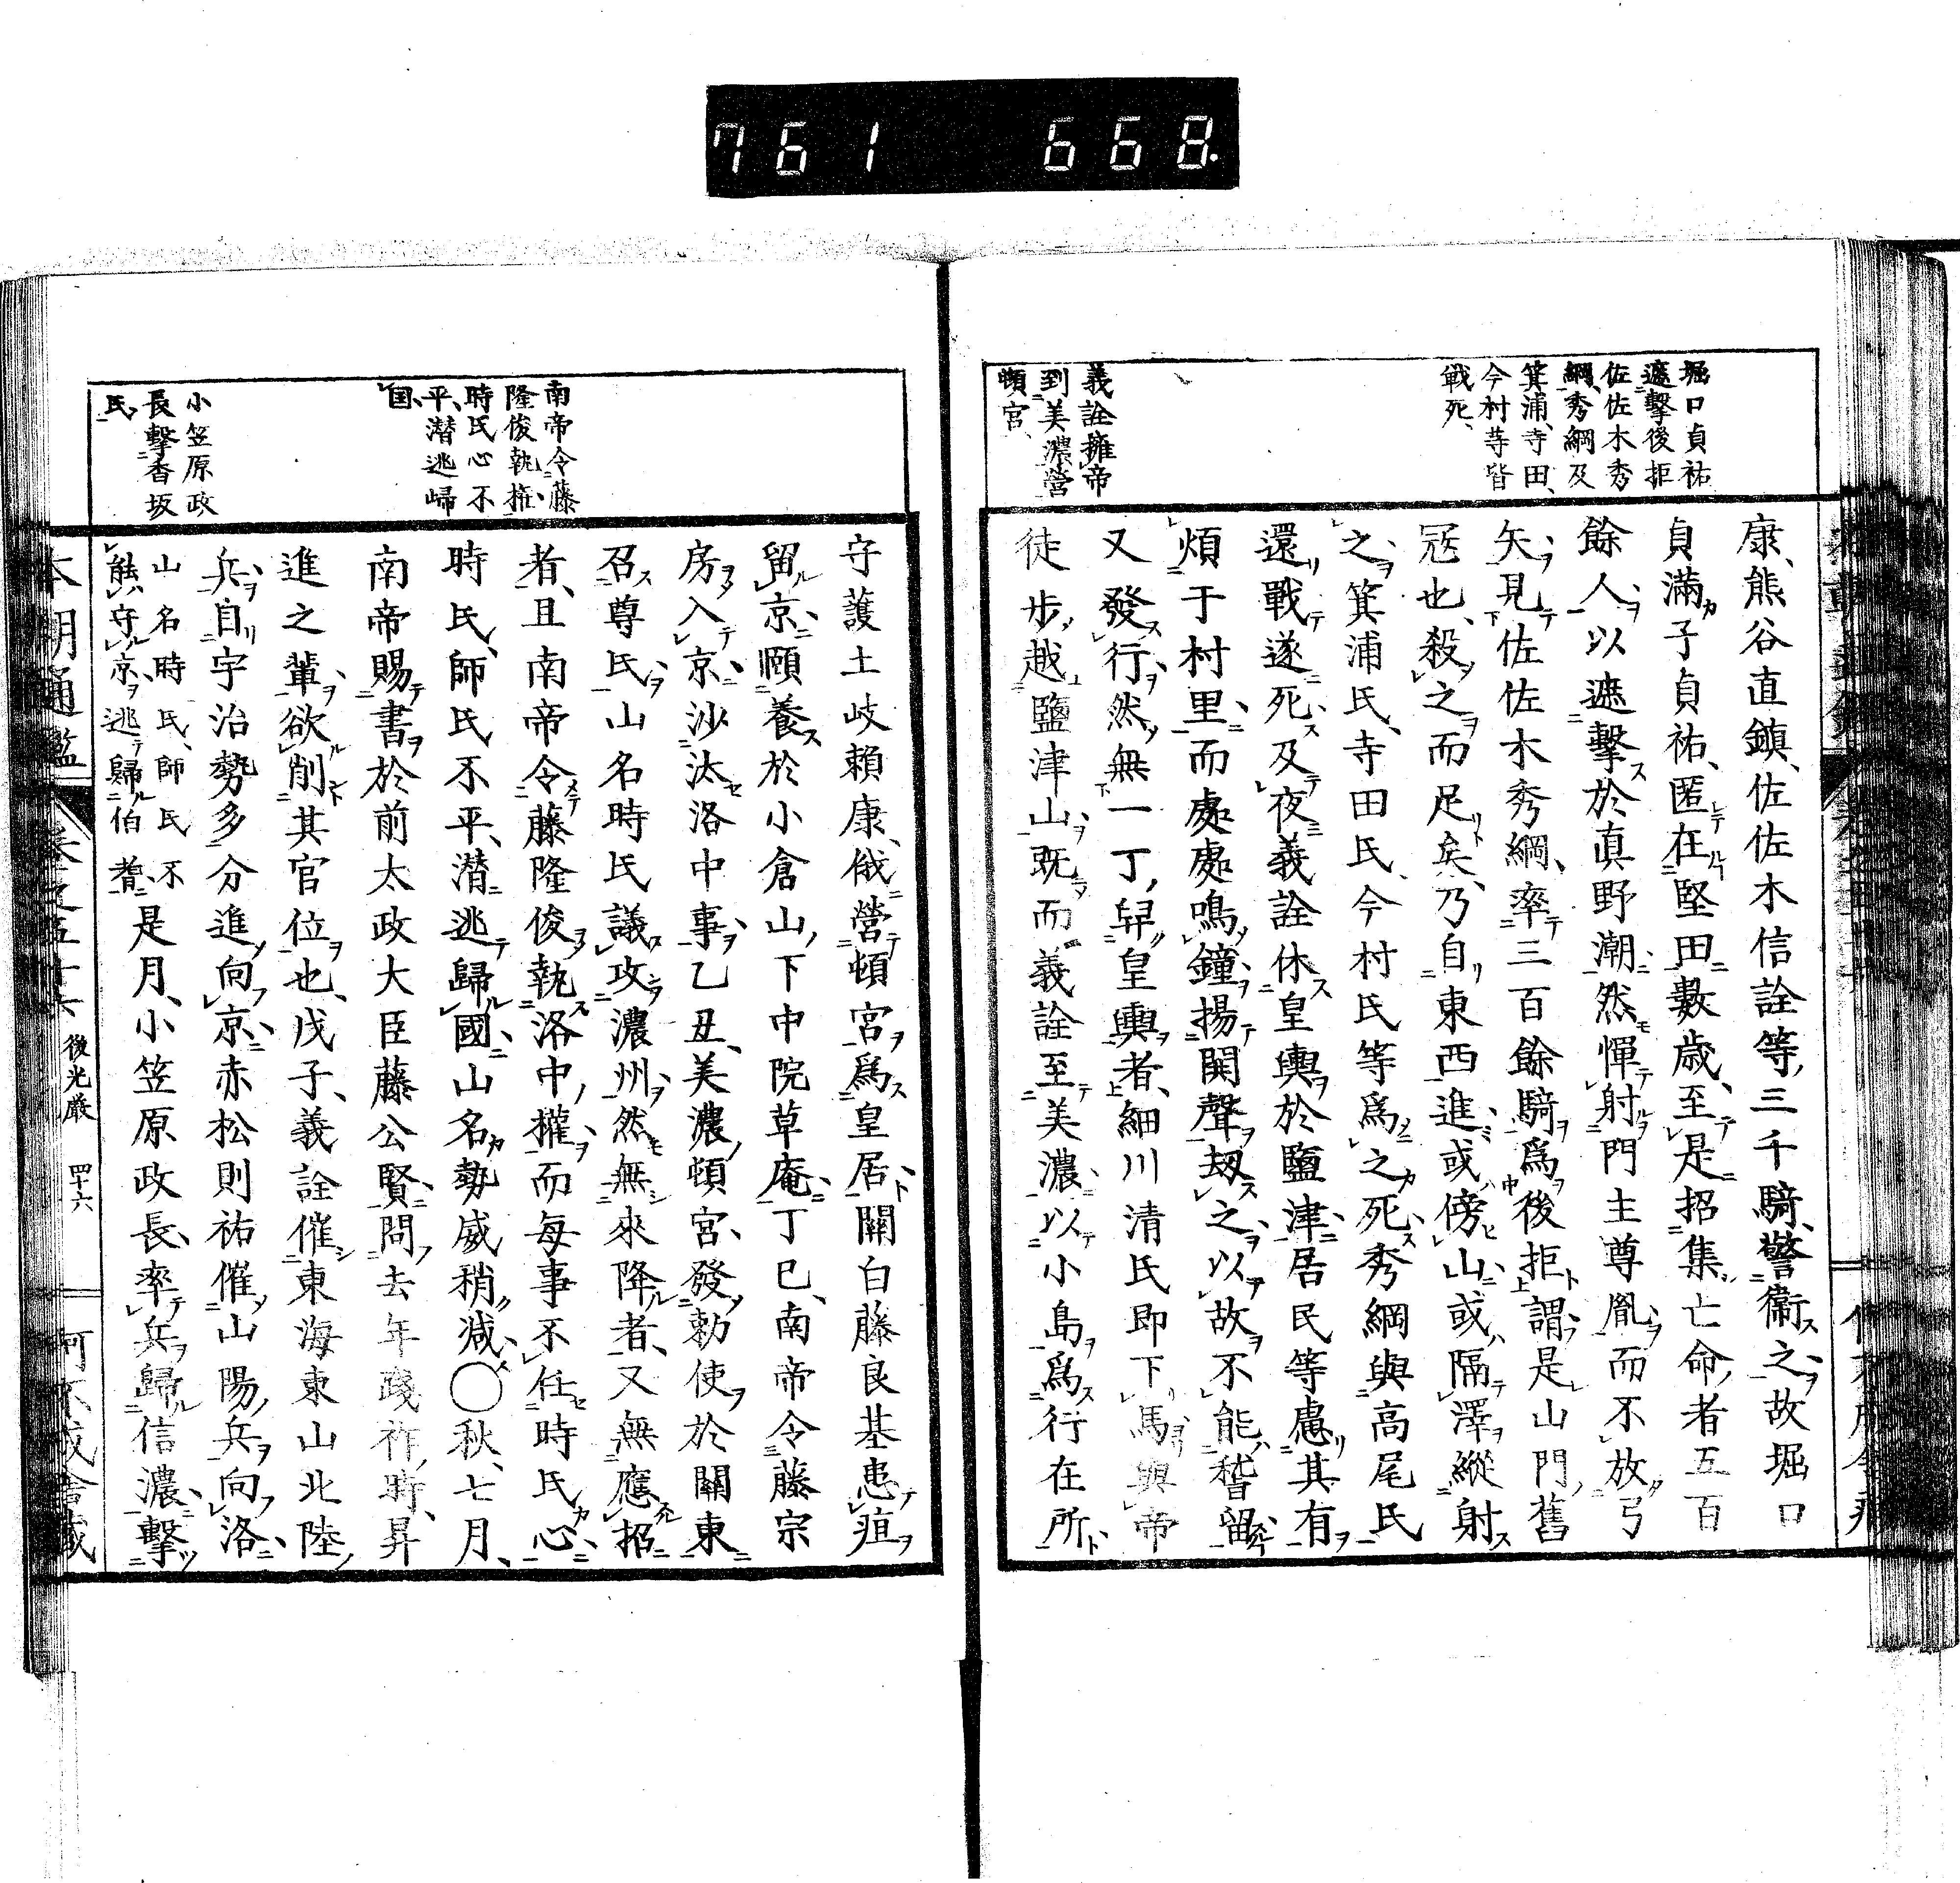 761 668.
堀口貞祐
遮擊後拒
佐佐木秀
綱、秀綱及
箕浦、寺田、
今村等皆
戰死、
義詮擁帝
到美濃營
頓宮、
康、熊谷直鎮、佐佐木信詮等、三千騎、警衞之、故堀口
貞滿子貞祐、匿在堅田數歲、至是招集亡命者五百
餘人、以遮擊於眞野潮、然憚射門主尊胤、而不放弓
矢、見佐佐木秀綱、率三百餘騎爲後拒、謂是山門舊
冦也、殺之而足矣、乃自東西進、或傍山、或隔澤縱射
之、箕浦氏、寺田氏、今村氏等爲之死、秀綱與高尾氏
還戰遂死、及夜義詮休皇輿於鹽津、居民等慮其有
煩于村里、而處處鳴鐘、揚鬨聲刼之、以故不能稽留
又發行、然無一丁舁皇輿者、細川清氏即下馬與帝
徒步越鹽津山、既而義詮至美濃、以小島爲行在所
南帝令藤
隆俊執權、
時氏心不
平、潛逃歸
国、
小笠原政
長擊香坂
氏、
守護土岐賴康、俄營頓宮爲皇居、關白藤良基患疽
留京、頤養於小倉山下中院草庵、丁巳、南帝令藤宗
房入京、沙汰洛中事、乙丑、美濃頓宮、發勅使於關東
召尊氏、山名時氏議攻濃州、然無來降者、又無應招
者、且南帝令藤隆俊執洛中權、而每事不任時氏心、
時氏、師氏不平、潛逃歸國、山名勢威稍減、○秋、七月、
南帝賜書於前太政大臣藤公賢、問去年踐祚時、昇
進之輩、欲削其官位也、戊子、義詮催東海東山北陸
兵、自宇治勢多分進向京、赤松則祐催山陽兵向洛、
山名時氏、師氏不
能守京、逃歸伯耆、
是月、小笠原政長、率兵歸信濃、擊
本朝通鑑
後光嚴
四十六